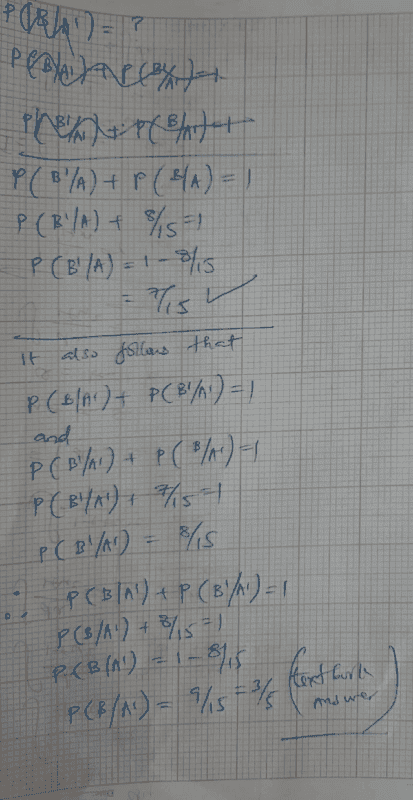 P(B/A') = ?
P(B/A') + P(B'/A') = 1
P(B'/A') + P(B/A') = 1
P(B'/A) + P(B/A) = 1
P(B'/A) + 8/15 = 1
P(B'/A) = 1 - 8/15
= 7/15 ✓
It also follows that
P(B/A') + P(B'/A') = 1
and
P(B'/A') + P(B/A') = 1
P(B'/A') + 7/15 = 1
P(B'/A') = 8/15
∴ P(B/A') + P(B'/A') = 1
P(B/A') + 8/15 = 1
P(B/A') = 1 - 8/15
P(B/A') = 9/15 = 3/5 (text burk
answer)